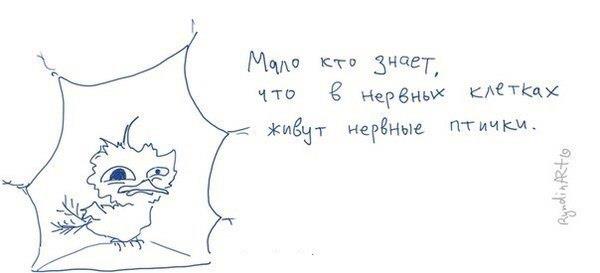 Мало кто знает,
что в нервных клетках
живут нервные птички.
RyndinArt